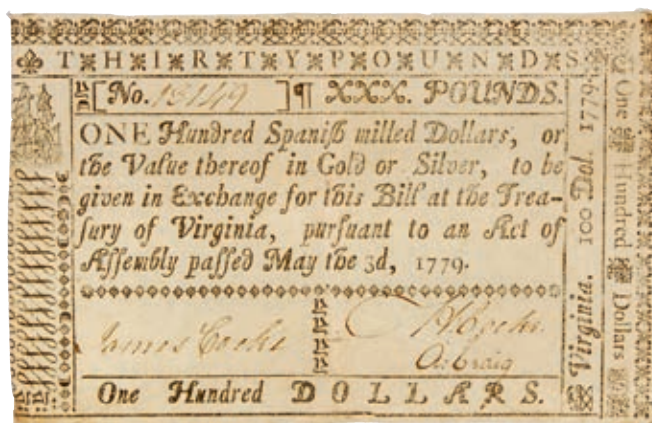 THIRTYPOUNDS
[No. 13149 ]¶ XXX. POUNDS.
ONE Hundred Spaniſh milled Dollars, or
the Value thereof in Gold or Silver, to be
given in Exchange for this Bill at the Trea-
ſury of Virginia, purſuant to an Act of
Aſſembly paſſed May the 3d, 1779.
James Cocke
A. Craig
One Hundred DOLLARS.
Virginia. 100 Dol. 1779.
One Hundred Dollars